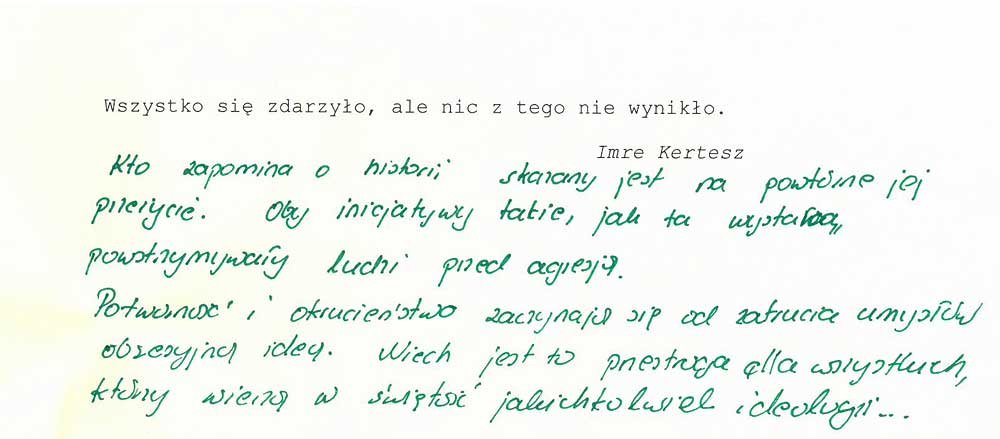 Wszystko się zdarzyło, ale nic z tego nie wynikło.
Imre Kertesz
Kto zapomina o historii skazany jest na powtórne jej
przeżycie. Oby inicjatywy takie, jak ta wystawa,
powstrzymywały ludzi przed agresją.
Potworność i okrucieństwo zaczynają się od zatrucia umysłów
obsesyjną ideą. Niech jest to przestroga dla wszystkich,
którzy wierzą w świętość jakichkolwiek ideologii...